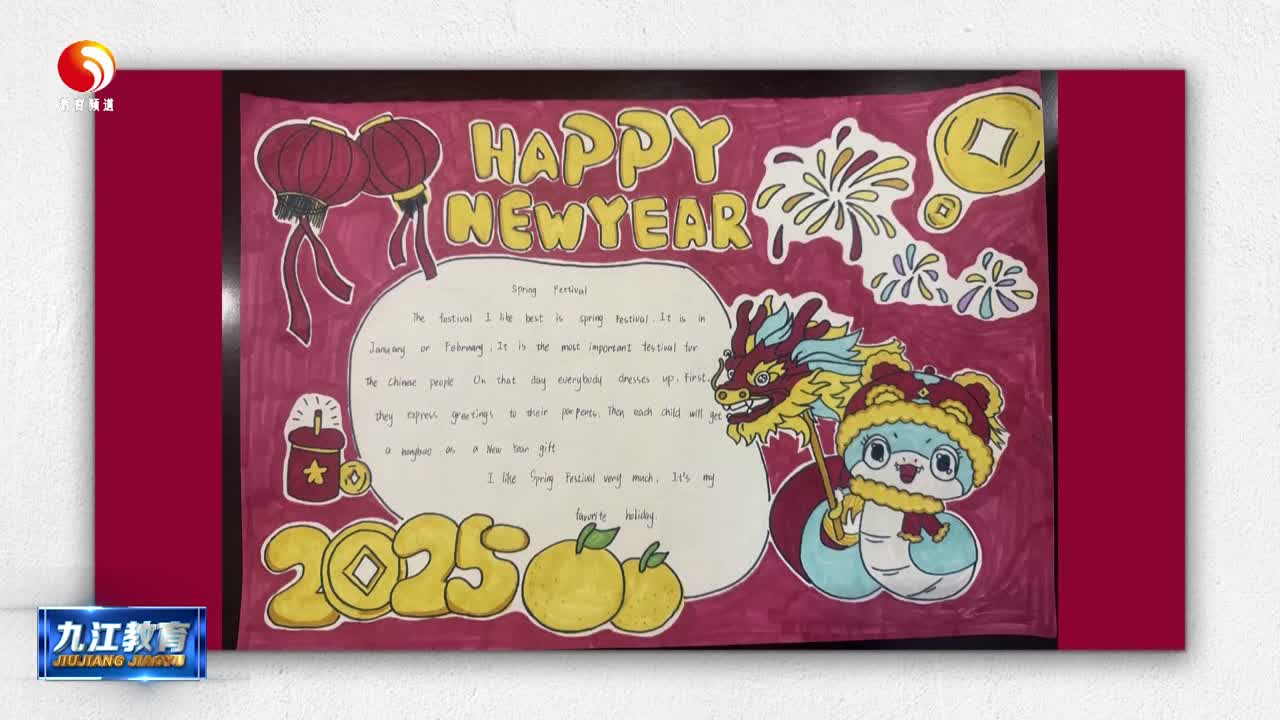 教育频道
HAPPY
NEW YEAR
Spring Festival
The festival I like best is spring Festival. It is in
January or February. It is the most important festival for
the Chinese people On that day everybody dresses up. First,
they express greetings to their parents. Then each child will get
a hongbao as a New Year gift
I like Spring Festival very much. It's my
favorite holiday.
2025
九江教育
JIUJIANG JIAOYU